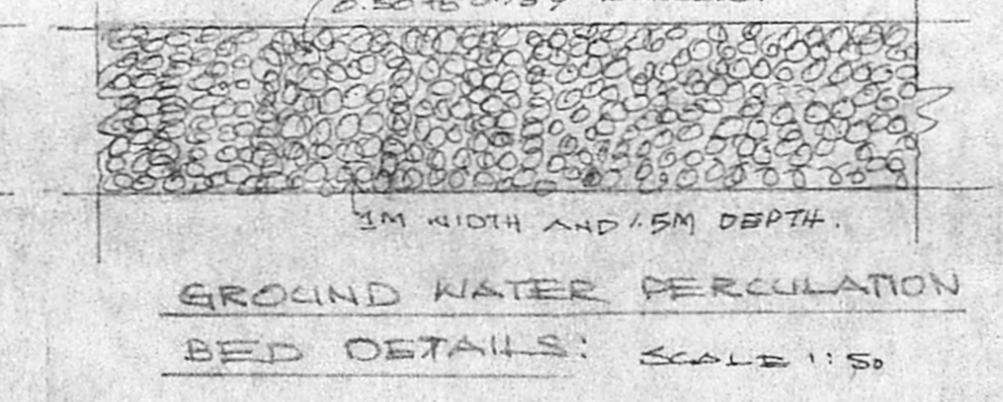 1M WIDTH AND 1.5M DEPTH.
GROUND WATER PERCULATION
BED DETAILS: SCALE 1:50